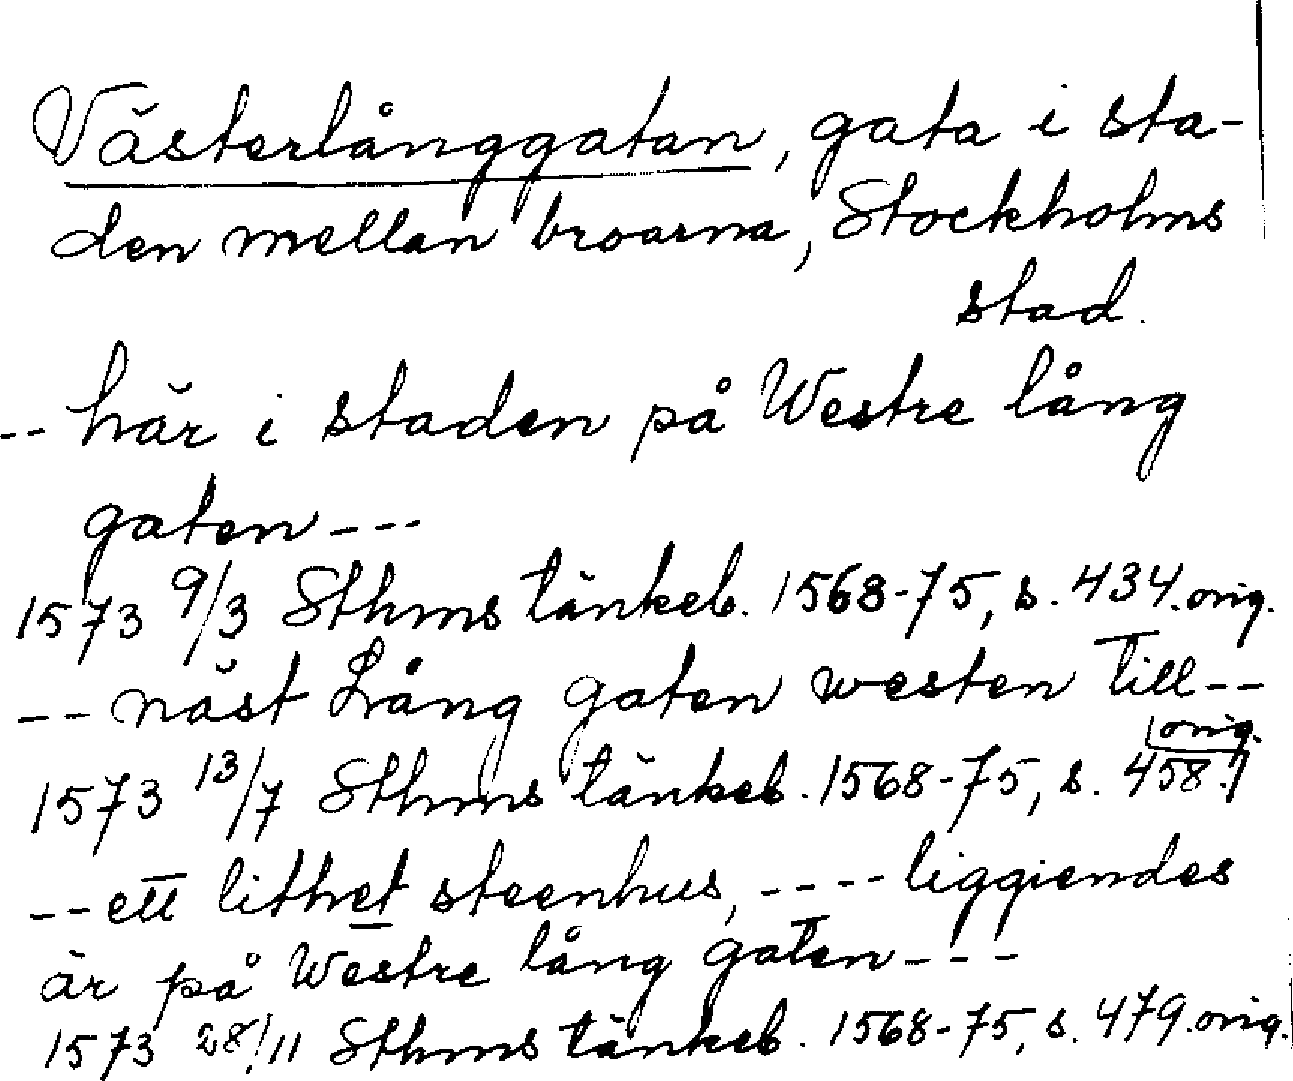 Västerlånggatan, gata i sta-
den mellan broarna, Stockholms
stad.
-- här i staden på Westre lång
gaten ---
1573 9/3 Sthms tänkeb. 1568-75, s. 434. orig.
-- näst Lång gaten westen till --
orig.
1573 13/7 Sthms tänkeb. 1568-75, s. 458.
-- ett lithet steenhus, ---- liggiendes
är på Westre lång gaten ---
1573 28/11 Sthms tänkeb. 1568-75, s. 479. orig.